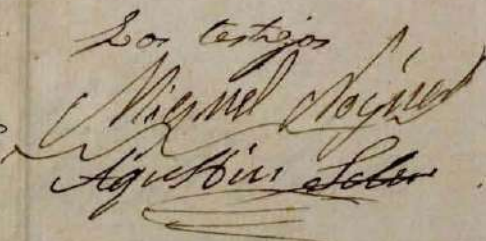 Los testigos
Miguel
Agustin Soler